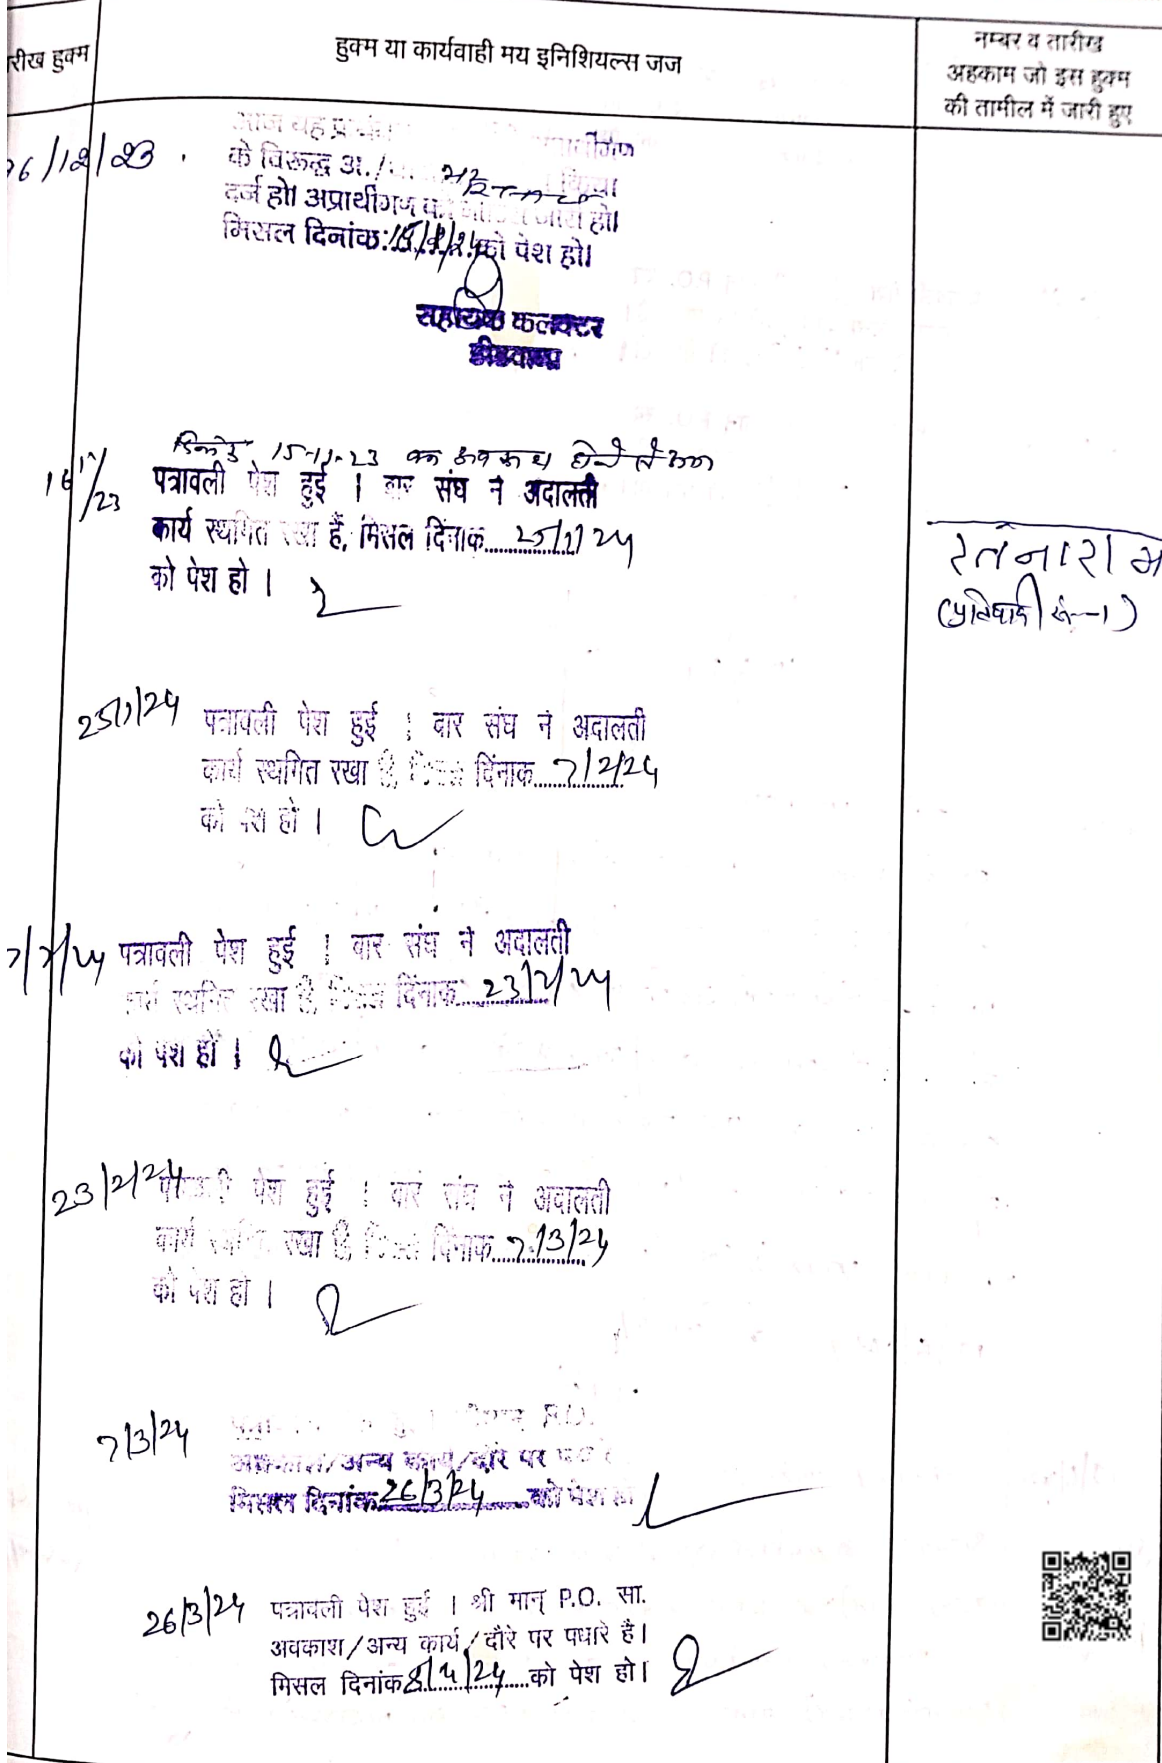 रीख हुक्म
हुक्म या कार्यवाही मय इनिशियल्स जज
नम्बर व तारीख
अहकाम जो इस हुक्म
की तामील में जारी हुए
आज यह
06/12/23
के विरूद्ध अ./
दर्ज हो। अप्रार्थीगण जारी हो।
मिसल दिनांक: को पेश हो।
सहायक कलक्टर
डीडवाना
15-11-23 का अवकाश होने से आज
16
पत्रावली पेश हुई । बार संघ ने अदालती
कार्य स्थगित रखा हैं, मिसल दिंनाक 25/1/24
को पेश हो ।
रतनाराम
(प्रतिवादी सं-1)
25/1/24 पत्रावली पेश हुई । बार संघ ने अदालती
कार्य स्थगित रखा है, मिसल दिंनाक 7/2/24
को पेश हो ।
7/2/24 पत्रावली पेश हुई । बार संघ ने अदालती
कार्य स्थगित रखा है, मिसल दिंनाक 23/2/24
को पेश हो ।
23/2/24 पत्रावली पेश हुई । बार संघ ने अदालती
कार्य स्थगित रखा है, मिसल दिंनाक 7/3/24
को पेश हो ।
7/3/24
P.O.
अवकाश/अन्य कार्य/दौरे पर
मिसल दिनांक 26/3/24 को पेश हो
26/3/24 पत्रावली पेश हुई । श्री मान् P.O. सा.
अवकाश/अन्य कार्य/दौरे पर पधारे है।
मिसल दिनांक 8/4/24 को पेश हो।